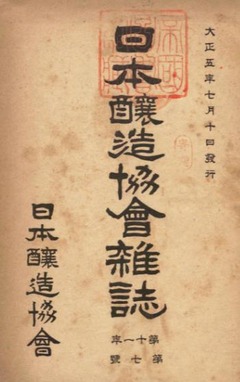 大正五年七月十日發行
日本釀造協會雜誌
第十一年
第七號
日本釀造協會